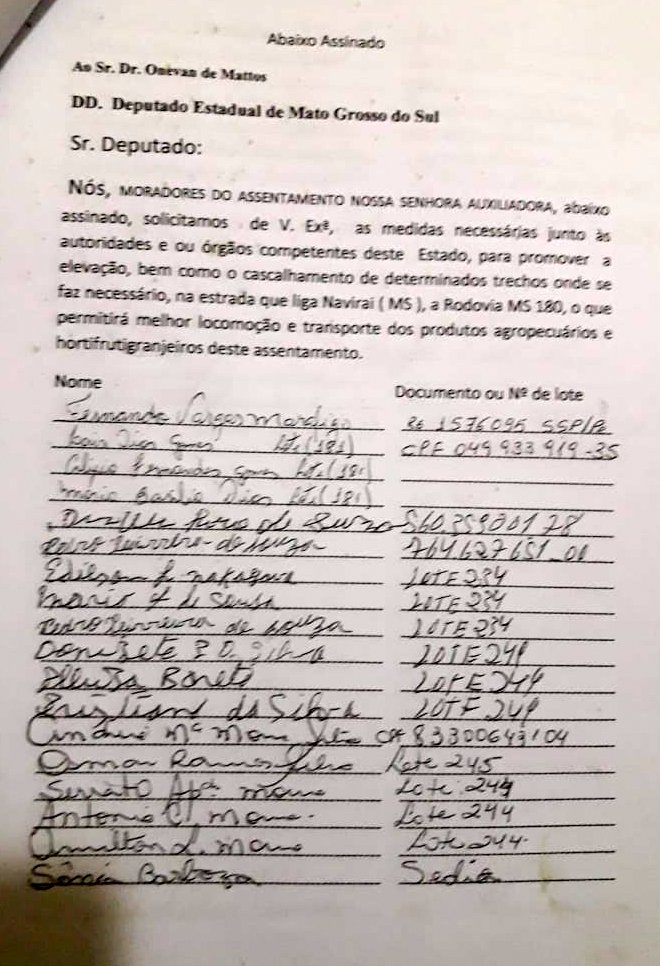 Abaixo Assinado
Ao Sr. Dr. Onevan de Mattos
DD. Deputado Estadual de Mato Grosso do Sul
Sr. Deputado:
Nós, MORADORES DO ASSENTAMENTO NOSSA SENHORA AUXILIADORA, abaixo
assinado, solicitamos de V. Exª, as medidas necessárias junto às
autoridades e ou órgãos competentes deste Estado, para promover a
elevação, bem como o cascalhamento de determinados trechos onde se
faz necessário, na estrada que liga Navirai ( MS ), a Rodovia MS 180, o que
permitirá melhor locomoção e transporte dos produtos agropecuários e
hortifrutigranjeiros deste assentamento.
Nome Documento ou Nº de lote
Fernanda Vargas 1576095 SSP/
Dias Gomes (181) CPF 049 933 919-35
Fernandes Gomes (181)
Maria Basilia Dias (181)
de Souza
Pedro Ferreira de Souza 764.627651-00
Edilson Nakagawa LOTE 234
Mario de Sousa LOTE 234
Pedro Ferreira de Souza LOTE 234
Donizete Silva LOTE 249
Boneto LOTE 249
da Silva LOTE 249
Mª CPF 83300643104
Osmar Ramos Lote 245
Lote 244
Antonio Lote 244
Lote 244
Sônia Barboza